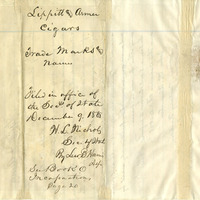 Lippitt & Armer
Cigars
Trade Marks &
Name
Filed in office of
the Secty of State
December 9, 188
W. C. Nichols
Secy of State
By
Dep
See Book C
Incorporations
Page 20